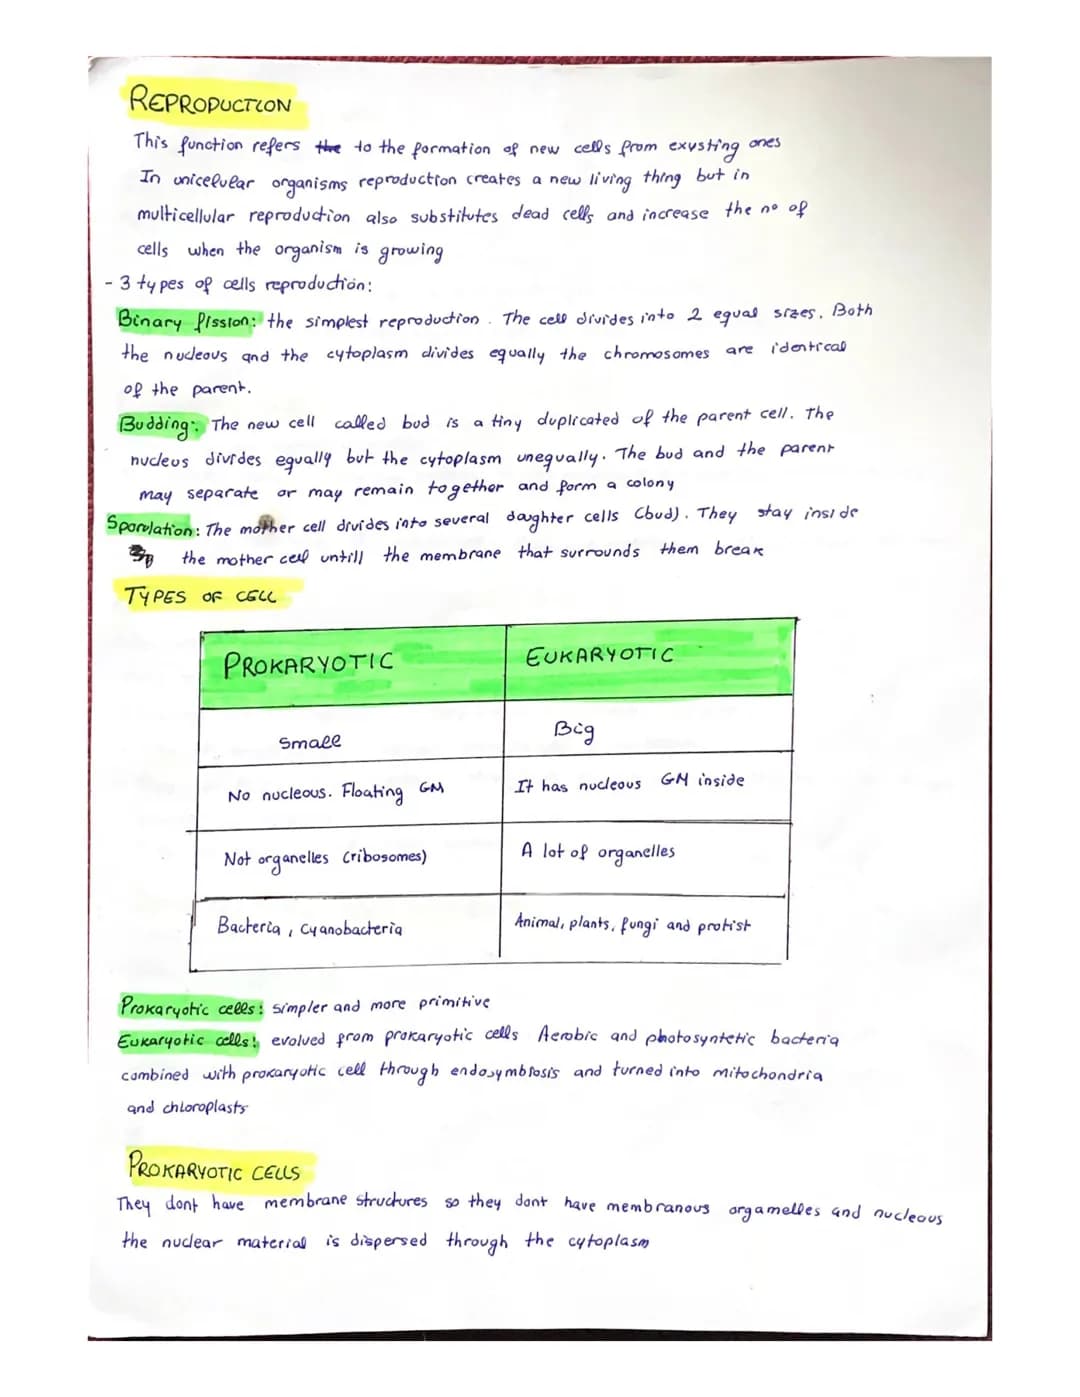 REPRODUCTION
This function refers the to the formation of new cells from exysting ones
In unicelular organisms reproduction creates a new living thing but in
multicellular reproduction also substitutes dead cells and increase the nº of
cells when the organism is growing
- 3 types of cells reproduction:
Binary fission: the simplest reproduction. The cell divides into 2 equal sizes. Both
the nucleous and the cytoplasm divides equally the chromosomes are identical
of the parent.
Budding: The new cell called bud is a tiny duplicated of the parent cell. The
nucleus divides equally but the cytoplasm unequally. The bud and the parent
may separate or may remain together and form a colony
Sporulation: The mother cell divides into several daughter cells (bud). They stay inside
the mother cell untill the membrane that surrounds them break
TYPES OF CELL
PROKARYOTIC EUKARYOTIC
Small Big
No nucleous. Floating GM It has nucleous GM inside
Not organelles (ribosomes) A lot of organelles
Bacteria, Cyanobacteria Animal, plants, fungi and protist
Prokaryotic cells: simpler and more primitive
Eukaryotic cells: evolved from prokaryotic cells Aerobic and photosyntetic bacteria
combined with prokaryotic cell through endosymbiosis and turned into mitochondria
and chloroplasts
PROKARYOTIC CELLS
They dont have membrane structures so they dont have membranous orgamelles and nucleous
the nuclear material is dispersed through the cytoplasm